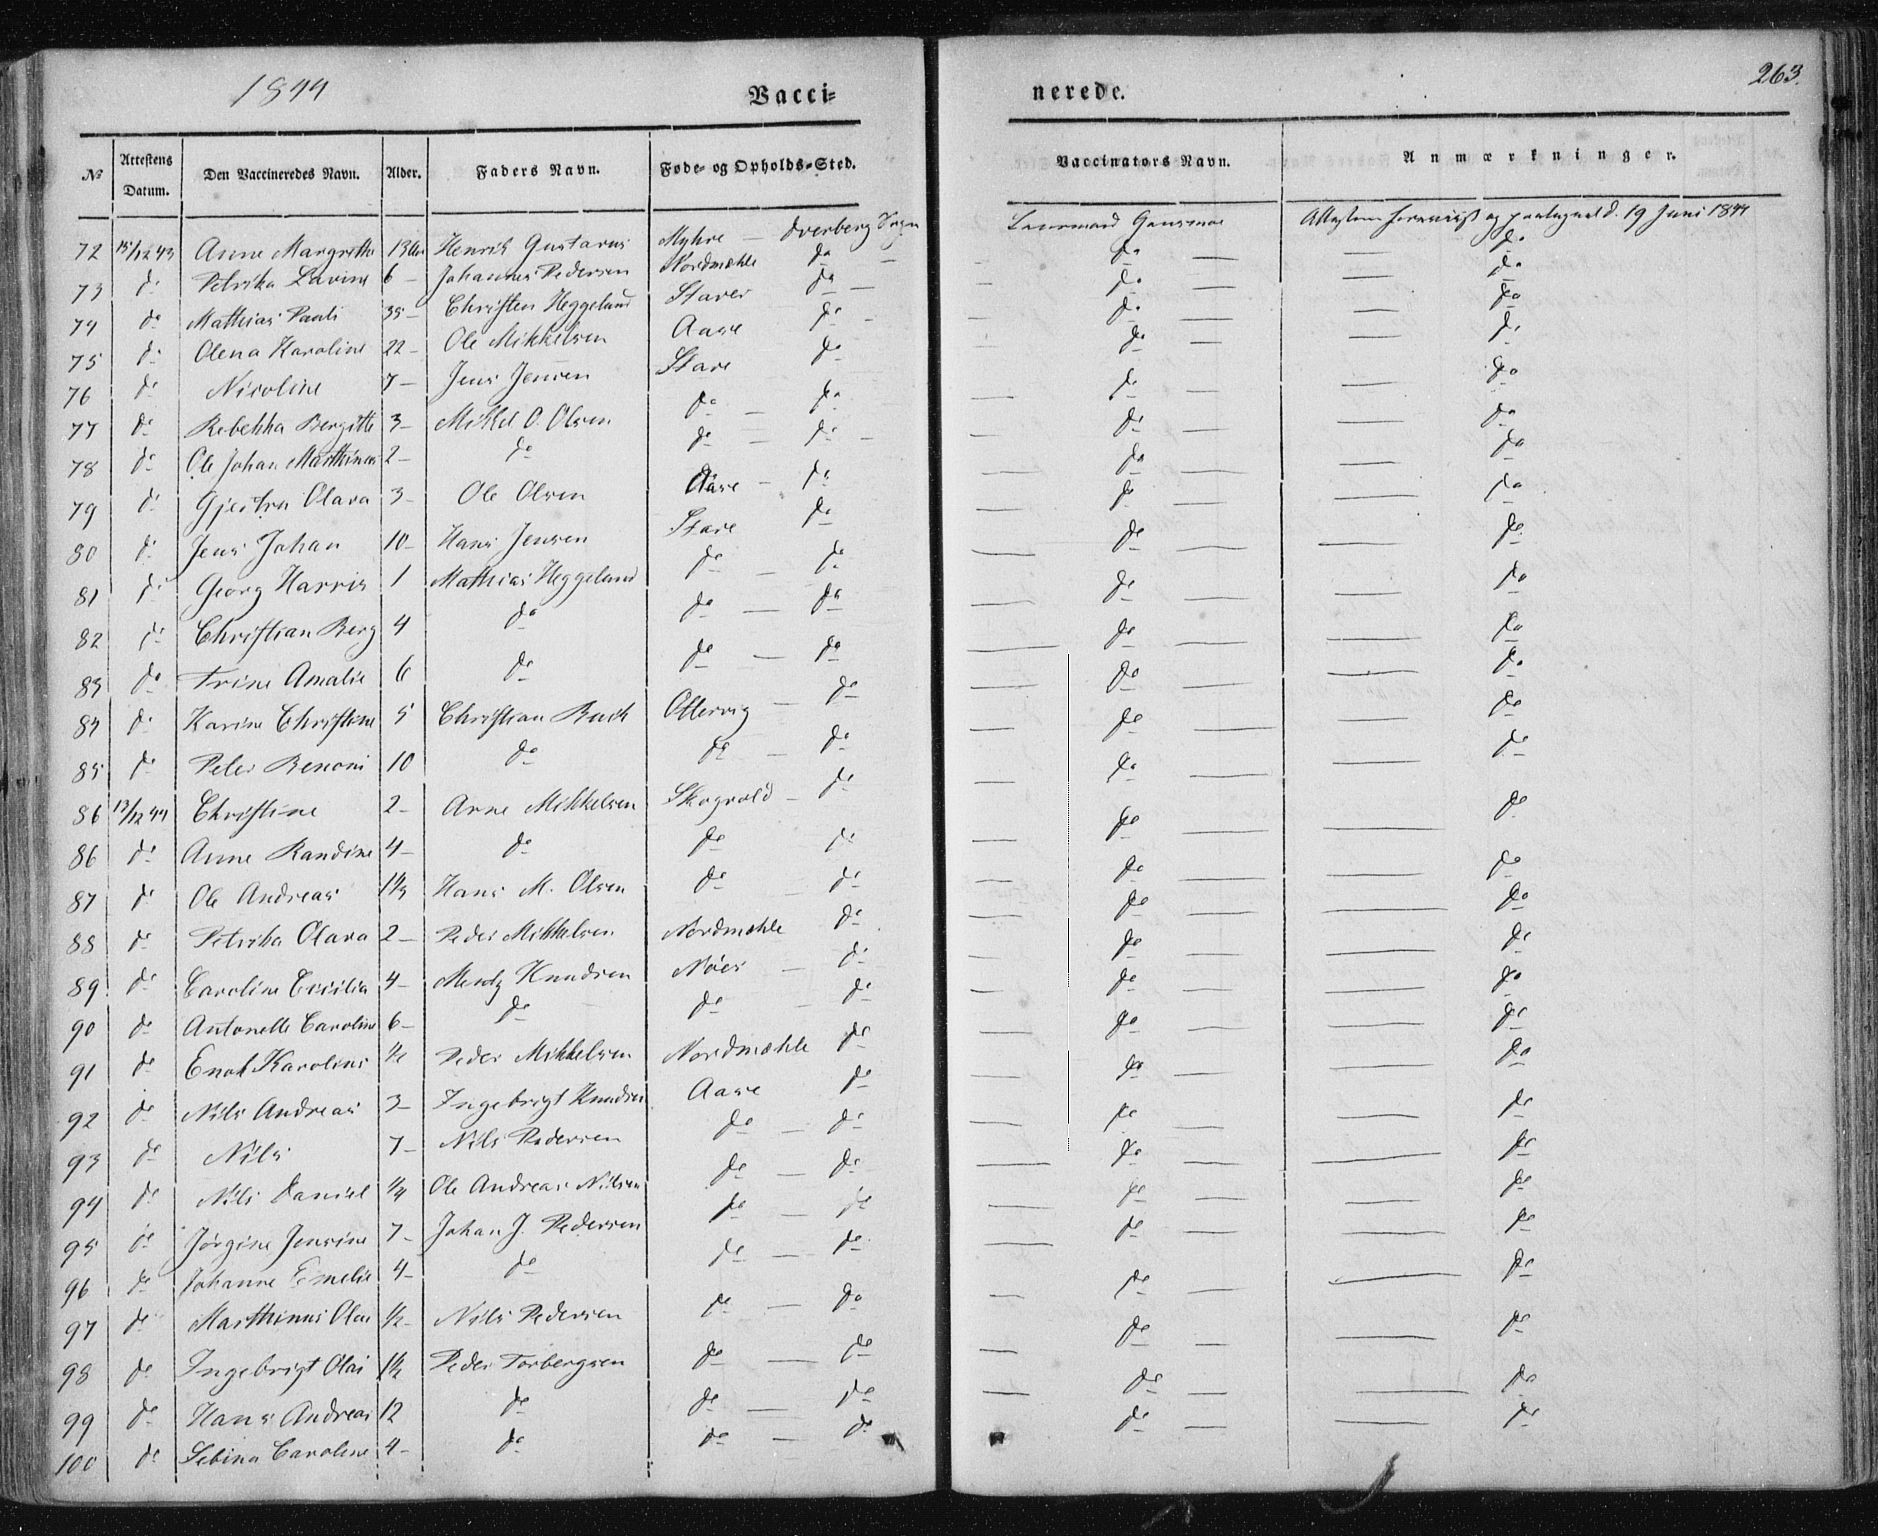 1844
Vacci=
nerede.
263.
No
Attestens Datum.
Den Vaccineredes Navn.
Alder.
Faders Navn.
Føde= og Opholds=Sted.
Vaccinators Navn.
Anmærkninger.
72 15/12 43 Anne Margrethe 13 Henrik Gustavus Myhre — Dverberg Sogn Attesten foreviist og paategned d. 19 Juni 1844
73 do Petrika Lavine 6 — Johannes Pedersen Nordmæhle do — do — do
74 do Mathias Pauli 35 — Christen Heggelund Staver do — do — do
75 do Olena Karoline 22 — Ole Mikkelsen Aase do — do — do
76 do Nicoline 7 — Jens Jensen Stave do do — do
77 do Rebekka Bergitte 3 — Mikkel O. Olsen do — do do — do
78 do Ole Johan Marthinus 2 — do do — do — do — do
79 do Gjertru Olava 3 — Ole Olsen Aase — do do — do
80 do Jens Johan 10 — Hans Jensen Stave do do — do
81 do Georg Harris 1 Mathias Heggelund do — do do — do
82 do Christian Berg 4 do do — do do — do
83 do Trine Amalie 6 do do — do do — do
84 do Karine Christine 5 Christian Buck Ottervig — do do — do
85 do Peter Benoni 10 do do — do do — do
86 13/12 44 Christine 2 — Arne Mikkelsen Skogvold — do do — do
86 do Anne Randine 4 — do do do do — do
87 do Ole Andreas Hans M. Olsen do — do do — do
88 do Petrika Olava 2 — Peder Mikkelsen Nordmæhle do do — do
89 do Caroline Cecilia 4 — Mentz Knudsen Nöes — do do — do
90 do Antonette Caroline 6 — do do — do do — do
91 do Enok Karolius Peder Mikkelsen Nordmæhle do do — do
92 do Nils Andreas 3 — Ingebrigt Knudsen Aase do do — do
93 do Nils 7 — Nils Pedersen do — do do — do
94 do Nils Daniel 1/4 Ole Andreas Nilsen do — do do — do
95 do Jørgine Jensine 7 — Johan J. Pedersen do — do do — do
96 do Johanne Emelie 4 — do do — do do — do
97 do Marthinus Olai 1/2 — Nils Pedersen do — do do — do
98 do Ingebrigt Olai 1 1/2 Peder Torbergsen do — do do — do
99 do Hans Andreas 12 do do — do do — do
100 do Sebina Caroline 4 — do do — do do — do